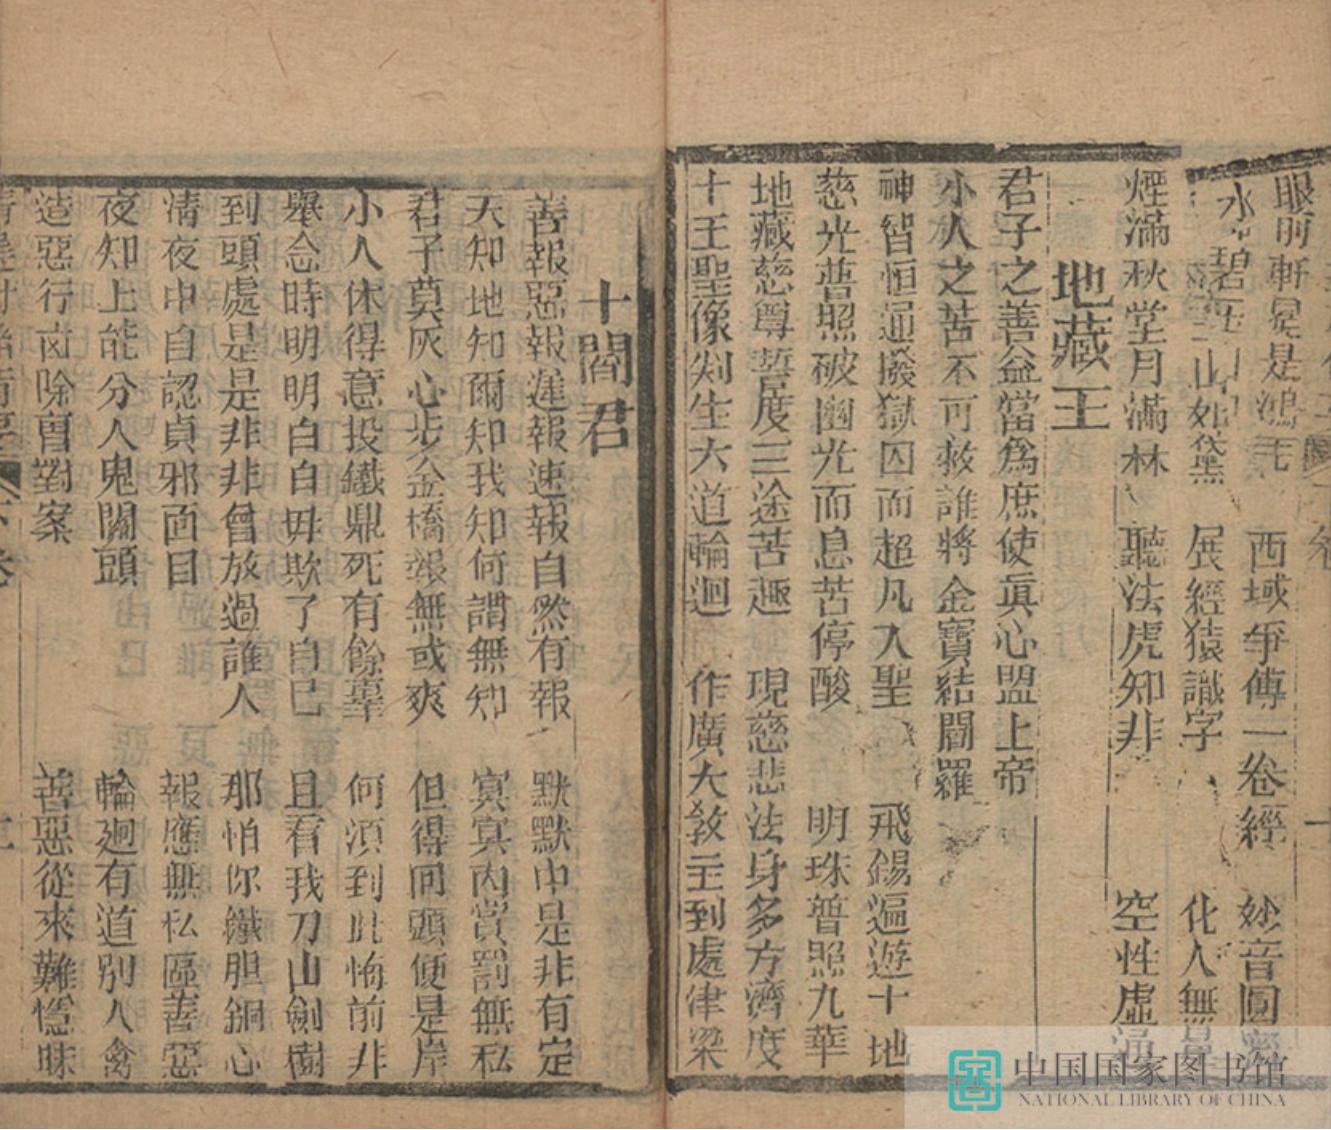 眼前軒冕是鴻毛 西域爭傳二卷經 妙音圓
水碧 山如黛 展經猿識字 化人無量
煙滿秋堂月滿林 聽法虎知非 空性虛
地藏王
君子之善益當為庶使真心盟上帝
小人之苦不可救誰將金寶結閻羅
神智恒通撥獄囚而超凡入聖 飛錫遍遊十地
慈光普照破幽光而息苦停酸 明珠普照九華
地藏慈尊誓度三途苦趣 現慈悲法身多方濟度
十王聖像剡生六道輪迴 作廣大教主到處津梁
十閻君
善報惡報遲報速報自然有報 默默中是非有定
天知地知爾知我知何謂無知 冥冥內賞罰無私
君子莫灰心步金橋報無或爽 但得回頭便是岸
小人休得意投鐵鼎死有餘辜 何須到此悔前非
舉念時明明白白毋欺了自己 且看我刀山劍樹
到頭處是是非非曾放過誰人 那怕你鐵胆銅心
清夜中自認貞邪面目 報應無私區善惡
夜知上能分人鬼關頭 輪迴有道別人禽
造惡行凶除曹對案 善惡從來難隱昧
卷
中国国家图书馆
NATIONAL LIBRARY OF CHINA